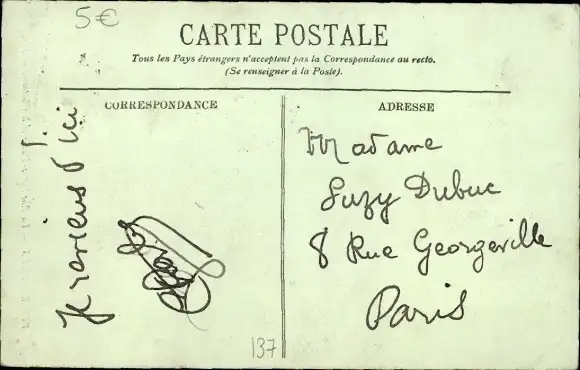 5€
CARTE POSTALE
Tous les Pays étrangers n'acceptent pas la Correspondance au recto.
(Se renseigner à la Poste).
CORRESPONDANCE
Je reviens d'ici
137
ADRESSE
Madame
Suzy Dubuc
8 Rue Georgeville
Paris